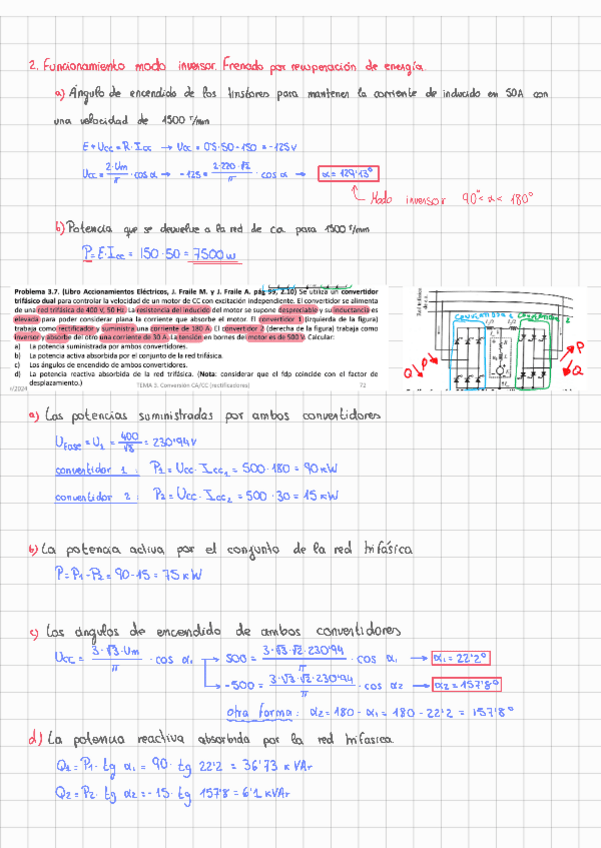 2. Funcionamiento modo inversor. Frenado por recuperación de energía.
a) Ángulo de encendido de los tiristores para mantener la corriente de inducido en 50A con
una velocidad de 1500 r/min
E + Ucc = R · Icc → Ucc = 0'5 · 50 - 150 = -125V
Ucc = 2·Um/π · cos α → -125 = 2·220·√2/π · cos α → α = 129'13°
Modo inversor 90° < α < 180°
b) Potencia que se devuelve a la red de ca para 1500 r/min
P = E·Icc = 150 · 50 = 7500 w
Problema 3.7. (Libro Accionamientos Eléctricos, J. Fraile M. y J. Fraile A. pág 99, 2.10) Se utiliza un convertidor
trifásico dual para controlar la velocidad de un motor de CC con excitación independiente. El convertidor se alimenta
de una red trifásica de 400 V, 50 Hz. La resistencia del inducido del motor se supone despreciable y su inductancia es
elevada para poder considerar plana la corriente que absorbe el motor. El convertidor 1 (izquierda de la figura)
trabaja como rectificador y suministra una corriente de 180 A. El convertidor 2 (derecha de la figura) trabaja como
inversor y absorbe del otro una corriente de 30 A. La tensión en bornes del motor es de 500 V. Calcular:
a) La potencia suministrada por ambos convertidores.
b) La potencia activa absorbida por el conjunto de la red trifásica.
c) Los ángulos de encendido de ambos convertidores.
d) La potencia reactiva absorbida de la red trifásica. (Nota: considerar que el fdp coincide con el factor de
desplazamiento.)
TEMA 3. Conversión CA/CC (rectificadores)
72
P
Q
P
Q
a) Las potencias suministradas por ambos convertidores
Ufase = U1 = 400/√3 = 230'94V
convertidor 1: P1 = Ucc · Icc1 = 500 · 180 = 90 kW
convertidor 2: P2 = Ucc · Icc2 = 500 · 30 = 15 kW
b) La potencia activa por el conjunto de la red trifásica
P = P1 - P2 = 90 - 15 = 75 kW
c) Los ángulos de encendido de ambos convertidores
Ucc = 3·√3·Um/π · cos α1 → 500 = 3·√3·√2·230'94/π · cos α1 → α1 = 22'2°
→ -500 = 3·√3·√2·230'94/π · cos α2 → α2 = 157'8°
otra forma: α2 = 180 - α1 = 180 - 22'2 = 157'8°
d) La potencia reactiva absorbida por la red trifasica
Q1 = P1 · tg α1 = 90 · tg 22'2 = 36'73 kVAr
Q2 = P2 · tg α2 = -15 · tg 157'8 = 6'1 kVAr